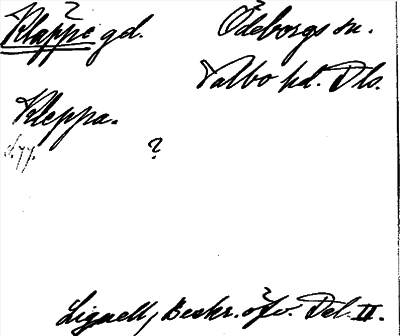 Klappe gd. Ödeborgs sn.
Valbo hd. Dls.
Kleppa.
s. 77. ?
Lignell, Beskr. öfv. Dal. II.